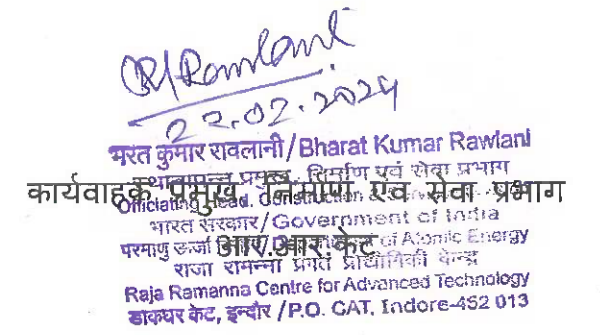 BKRawlani
22.02.2024
भरत कुमार रावलानी / Bharat Kumar Rawlani
स्थानापन्न प्रमुख, निर्माण एवं सेवा प्रभाग
कार्यवाहक प्रमुख, निर्माण एंव सेवा प्रभाग
Officiating Head, Construction &
भारत सरकार / Government of India
परमाणु ऊर्जा of Atomic Energy
आर.आर.केट
राजा रामन्ना प्रगत प्रौद्योगिकी केन्द्र
Raja Ramanna Centre for Advanced Technology
डाकघर केट, इन्दौर / P.O. CAT, Indore-452 013